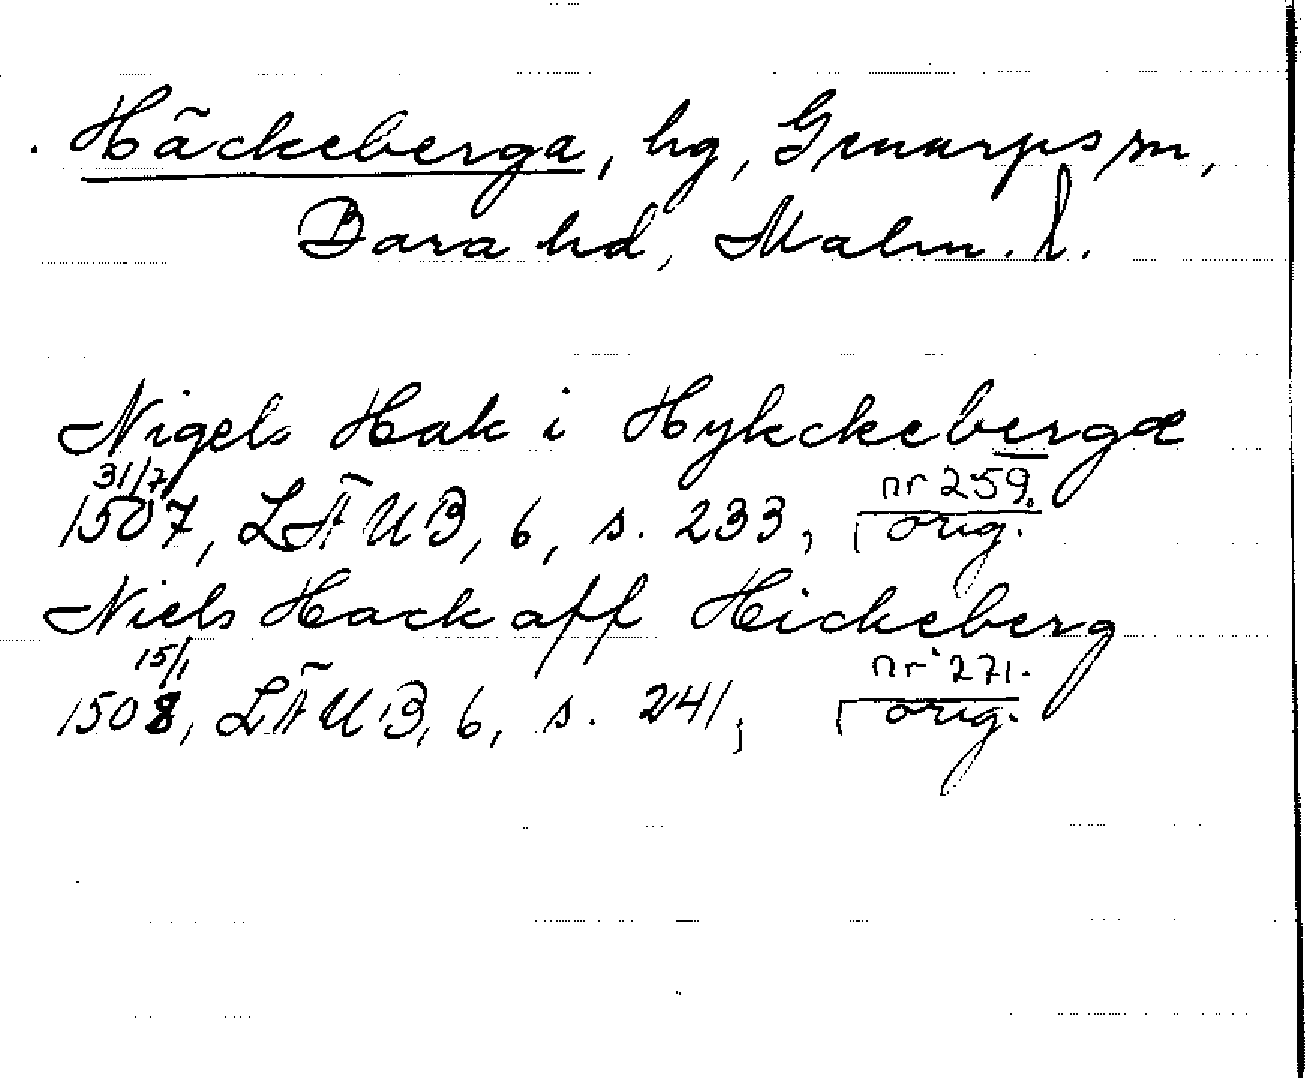 Häckeberga, hg, Genarps sn,
Bara hd, Malm. l.
Nigels Hak i Hykckebergæ
31/7 nr 259.
1507, LÄUB, 6, s. 233, orig.
Niels Hack aff Hickeberg
15/1 nr 271.
1508, LÄUB, 6, s. 241, orig.